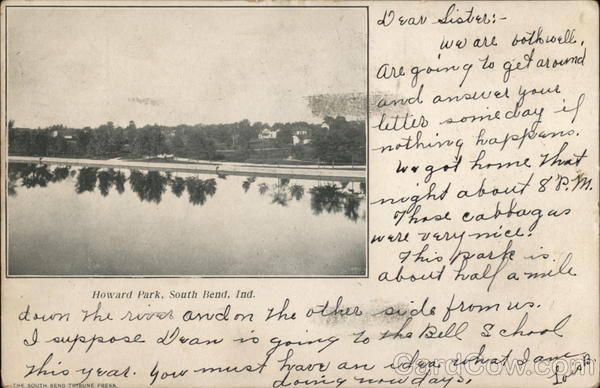 Dear Sister:-
We are both well,
Are going to get around
and answer your
letter someday if
nothing happens.
We got home that
night about 8 P.M.
Those cabbagus
were very nice.
This park is
about half a mile
Howard Park, South Bend, Ind.
down the river and on the other side from us.
I suppose Dean is going to the Bell School
this year. You must have an idea what I am
doing now days.
THE SOUTH BEND TRIBUNE PRESS.
CardCow.com